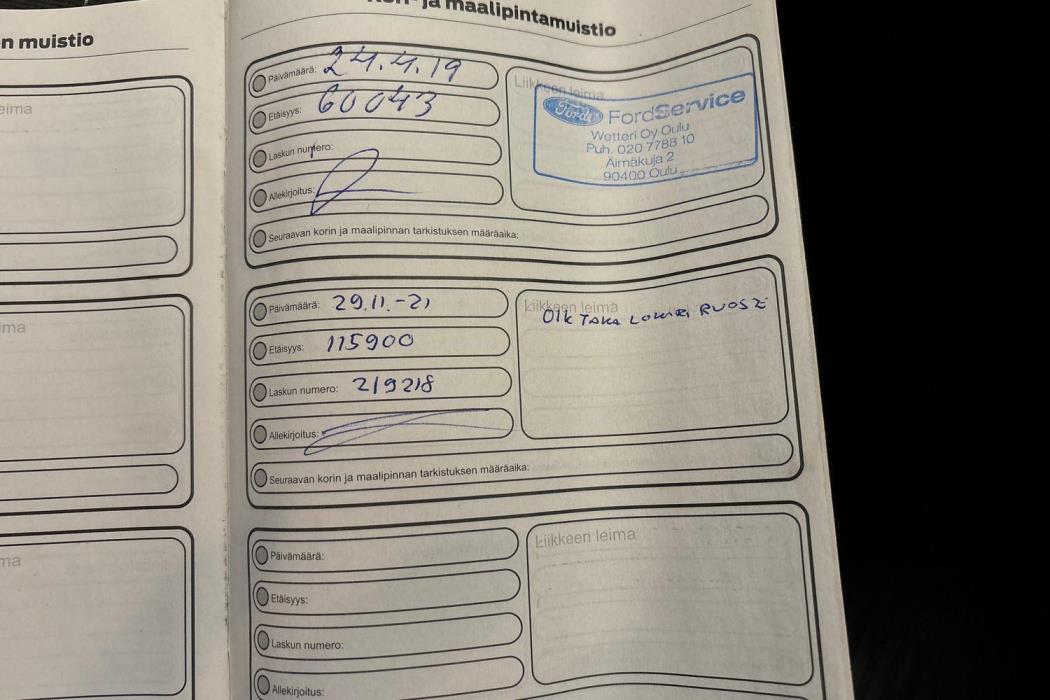 n muistio
eima
ima
ma
Kori- ja maalipintamuistio
Päivämäärä: 24.4.19
Etäisyys: 60043
Laskun numero:
Allekirjoitus:
Seuraavan korin ja maalipinnan tarkistuksen määräaika:
Liikkeen leima
Ford FordService
Wetteri Oy Oulu
Puh. 020 7788 10
Äimäkuja 2
90400 Oulu
Päivämäärä: 29.11.-21
Etäisyys: 115900
Laskun numero: 219218
Allekirjoitus:
Seuraavan korin ja maalipinnan tarkistuksen määräaika:
Liikkeen leima
OIK TAKA LOKARI RUOSZ
Päivämäärä:
Etäisyys:
Laskun numero:
Allekirjoitus:
Liikkeen leima